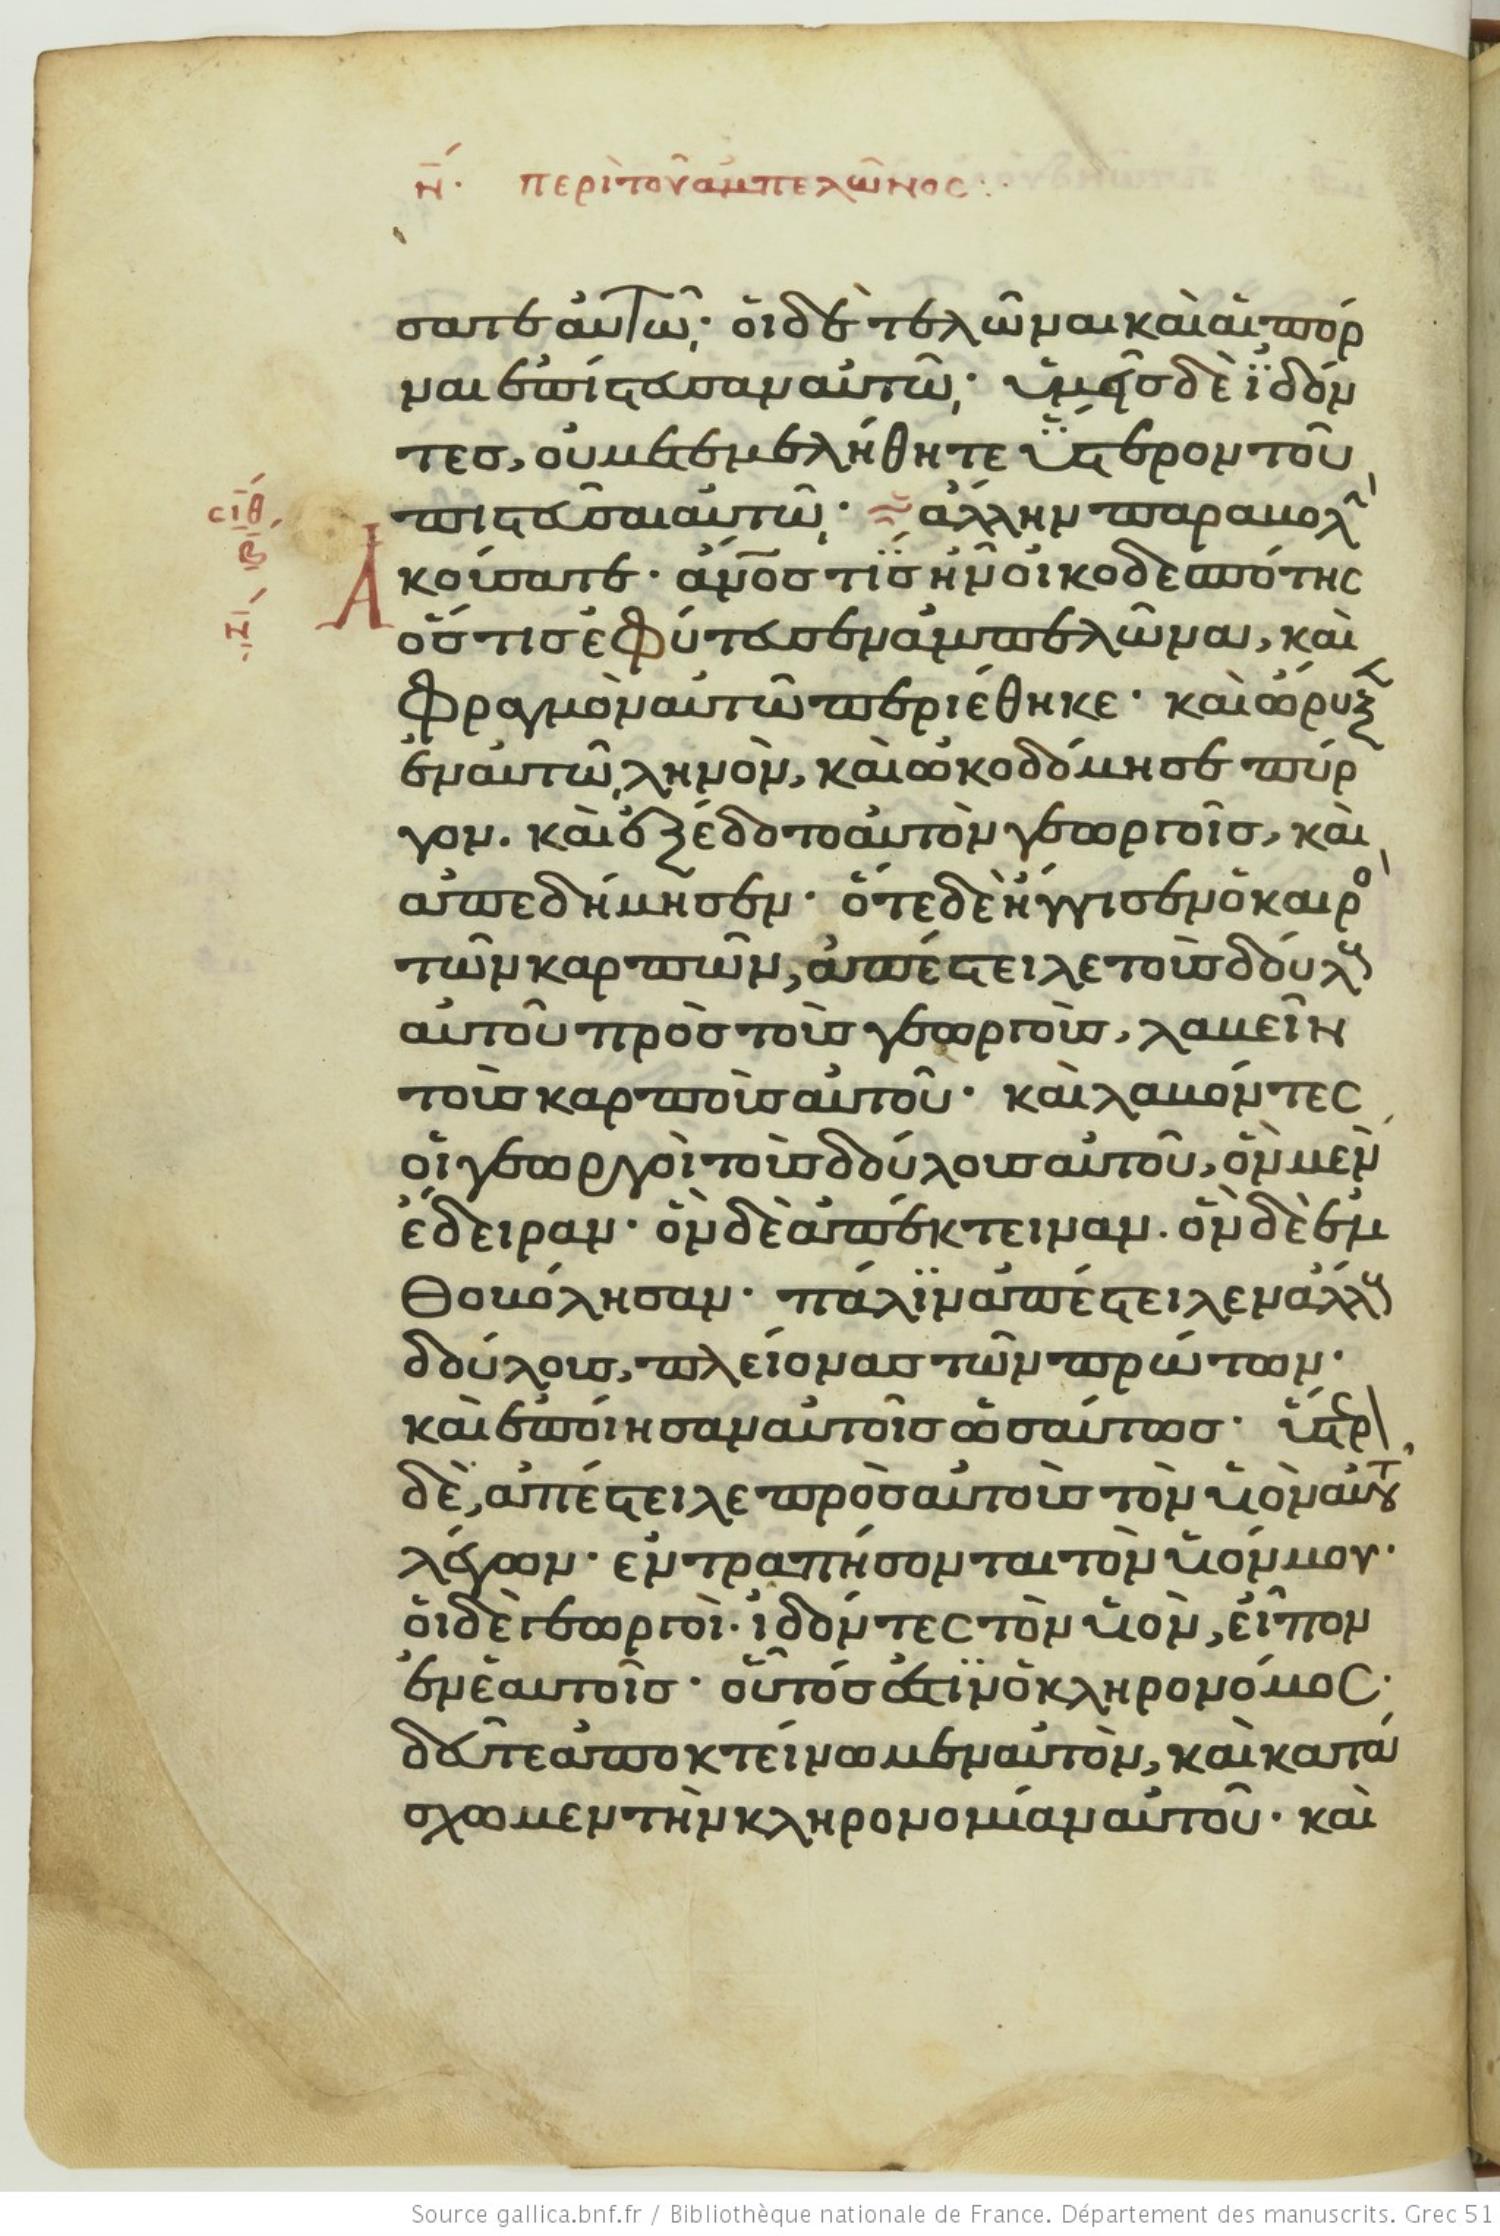 ν´. περὶ τοῦ ἀμπελῶνος:.
σατε αὐτῶ· οἱ δὲ τελῶναι καὶ αἱ πόρ
ναι ἐπίστευσαν αὐτῶ· ὑμεῖς δὲ ἰδόν
τες, οὐ μετεμελήθητε ὕστερον τοῦ
σιθ
πιστεῦσαι αὐτῶ· ἄλλην παραβολ
β
Ακούσατε· ἄνος τίς ἦν οἰκοδεσπότης
ὅστις ἐφύτευσεν ἀμπελῶνα, καὶ
φραγμὸν αὐτῶ περιέθηκε· καὶ ὤρυξ
ἐν αὐτῶ ληνὸν, καὶ ὠκοδόμησε πύρ
γον. καὶ ἐξέδοτο αὐτὸν γεωργοῖς, καὶ
ἀπεδήμησεν· ὅτε δὲ ἤγγισεν ὁ καιρο
τῶν καρπῶν, ἀπέστειλε τοὺς δούλους
αὐτοῦ πρὸς τοὺς γεωργοὺς, λαβεῖν
τοὺς καρποὺς αὐτοῦ· καὶ λαβόντες
οἱ γεωργοὶ τοὺς δούλους αὐτοῦ, ὃν μὲν
ἔδειραν· ὃν δὲ ἀπέκτειναν. ὃν δὲ ἐλι
θοβόλησαν· πάλιν ἀπέστειλεν ἄλλους
δούλους, πλείονας τῶν πρώτων·
καὶ ἐποίησαν αὐτοῖς ὡσαύτως· ὕστερον
δὲ, ἀπέστειλε πρὸς αὐτοὺς τὸν υἱὸν αὐτοῦ
λέγων· ἐντραπήσονται τὸν υἱόν μου·
οἱ δὲ γεωργοὶ· ἰδόντες τὸν υἱὸν, εἶπον
ἐν ἑαυτοῖς· οὗτός ἐστιν ὁ κληρονόμος·
δεῦτε ἀποκτείνωμεν αὐτὸν, καὶ κατά
σχωμεν τὴν κληρονομίαν αὐτοῦ· καὶ
Source gallica.bnf.fr / Bibliothèque nationale de France. Département des manuscrits. Grec 51